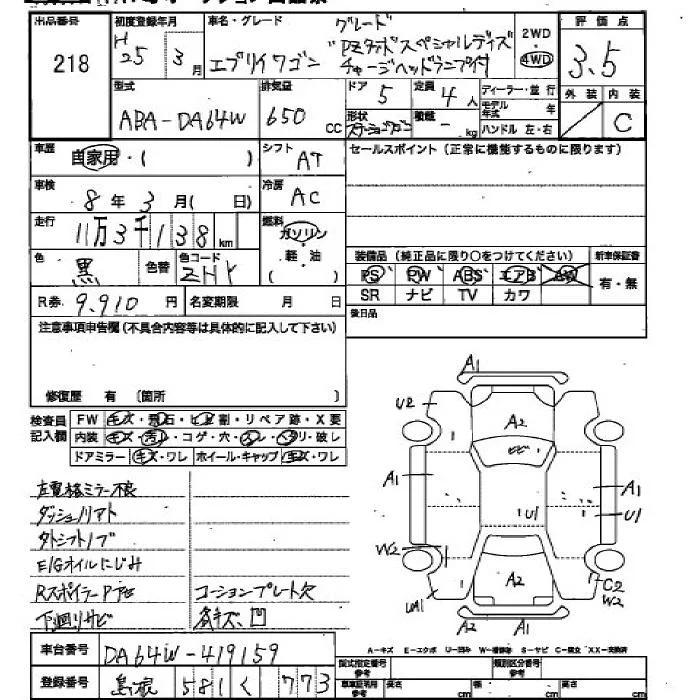 出品番号
218
初度登録年月
H 25年 3月
車名・グレード
エブリイワゴン
グレード
"PZターボスペシャルディズ
チャージヘッドランプ付
2WD
・
4WD
評価点
3.5
外装 内装
C
型式
ABA-DA64W
排気量
650 CC
ドア
5
定員
4人
形状
ステーションワゴン
積載
- kg
ディーラー・並行
モデル年式 年
ハンドル 左・右
車歴
自家用・( )
シフト
AT
セールスポイント(正常に機能するものに限ります)
車検
8年3月( 日)
冷房
AC
走行
11万3千138km
燃料
ガソリン
・
軽・油
・
( )
色
黒
色替
色コード
ZHY
装備品(純正品に限り○をつけてください)
PS PW ABS エアB AW
SR ナビ TV カワ
新車保証書
有・無
R券 9,910円
名変期限 月 日
後日品
注意事項申告欄(不具合内容等は具体的に記入して下さい)
修復歴 有 〔箇所 〕
検査員
記入欄
FW キズ・飛石・ヒビ割・リペア跡・X要
内装 キズ・汚れ・コゲ・穴・スレ・ヘタリ・破レ
ドアミラー キズ・ワレ ホイール・キャップ キズ・ワレ
左電格ミラー不良
ダッシュリアト
タトシフトノブ
E/Gオイルにじみ
Rスポイラー
下回りサビ
コーションプレート欠
各キズ、凹
A1
U2
A2
ヒビ
A1
A1
U1
U1
W2
A2
C2
W2
UA1
A2
A1
A-キズ E-エクボ U-凹み W-補修跡 S-サビ C-腐食 XX-交換済
車台番号
DA64W-419159
登録番号
島根 581 く 773
型式指定番号
参考
類別区分番号
参考
車車証記載
参考
長さ cm 幅 cm 高さ cm